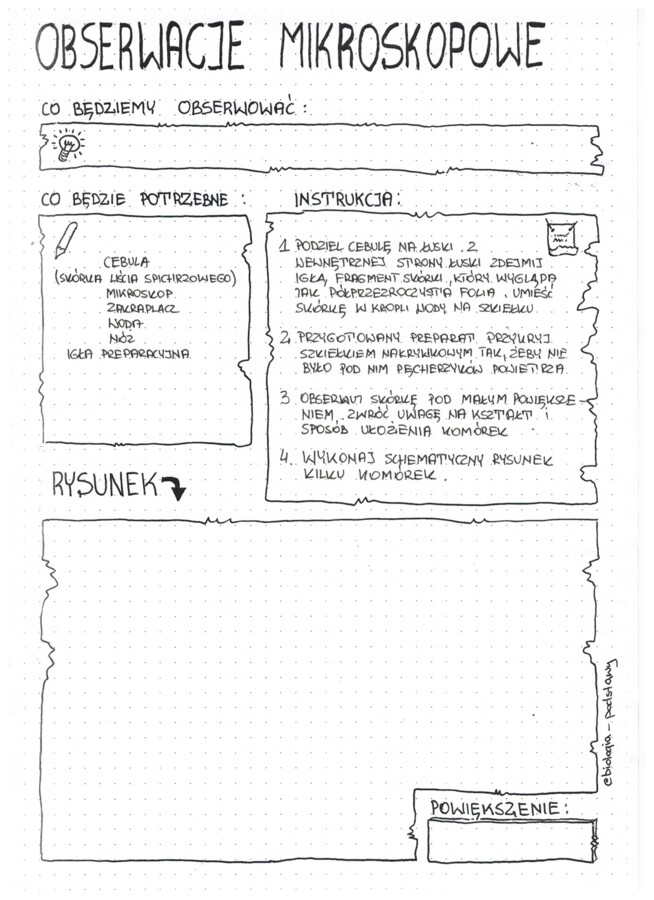 OBSERWACJE MIKROSKOPOWE
CO BĘDZIEMY OBSERWOWAĆ:
CO BĘDZIE POTRZEBNE:
CEBULA
(SKÓRKA LIŚCIA SPICHRZOWEGO)
MIKROSKOP
ZAKRAPLACZ
WODA
NÓŻ
IGŁA PREPARACYJNA
INSTRUKCJA:
1. PODZIEL CEBULĘ NA ŁUSKI. Z
WEWNĘTRZNEJ STRONY ŁUSKI ZDEJMIJ
IGŁĄ, FRAGMENT SKÓRKI, KTÓRY WYGLĄDA
JAK PÓŁPRZEZROCZYSTA FOLIA. UMIEŚĆ
SKÓRKĘ W KROPLI WODY NA SZKIEŁKU.
2. PRZYGOTOWANY PREPARAT PRZYKRYJ
SZKIEŁKIEM NAKRYWKOWYM TAK, ŻEBY NIE
BYŁO POD NIM PĘCHERZYKÓW POWIETRZA.
3. OBSERWUJ SKÓRKĘ POD MAŁYM POWIĘKSZE-
NIEM. ZWRÓĆ UWAGĘ NA KSZTAŁT I
SPOSÓB UŁOŻENIA KOMÓREK.
4. WYKONAJ SCHEMATYCZNY RYSUNEK
KILKU KOMÓREK.
RYSUNEK
@biologia-podstawy
POWIĘKSZENIE: